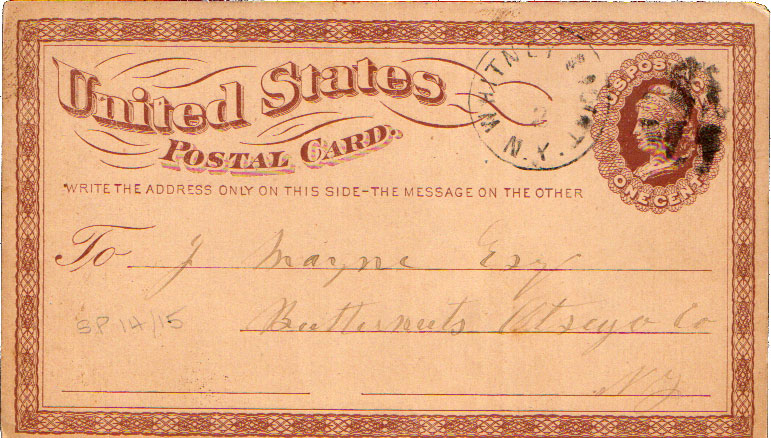 United States
POSTAL CARD.
WHITNEY
N.Y.
U.S. POSTAGE
ONE CENT
WRITE THE ADDRESS ONLY ON THIS SIDE-THE MESSAGE ON THE OTHER
To J Mayne Esq
Butternuts Otsego Co
N Y
SP 14/15